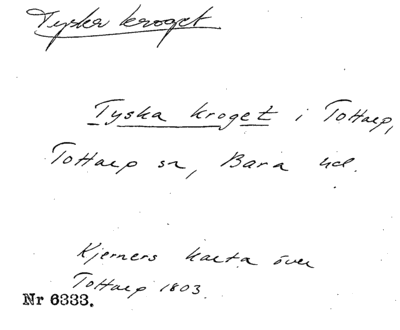 Tyska kroget
Tyska kroget i Tottarp,
Tottarp sn, Bara hd.
Kjerners karta över
Tottarp 1803.
Nr 6333.